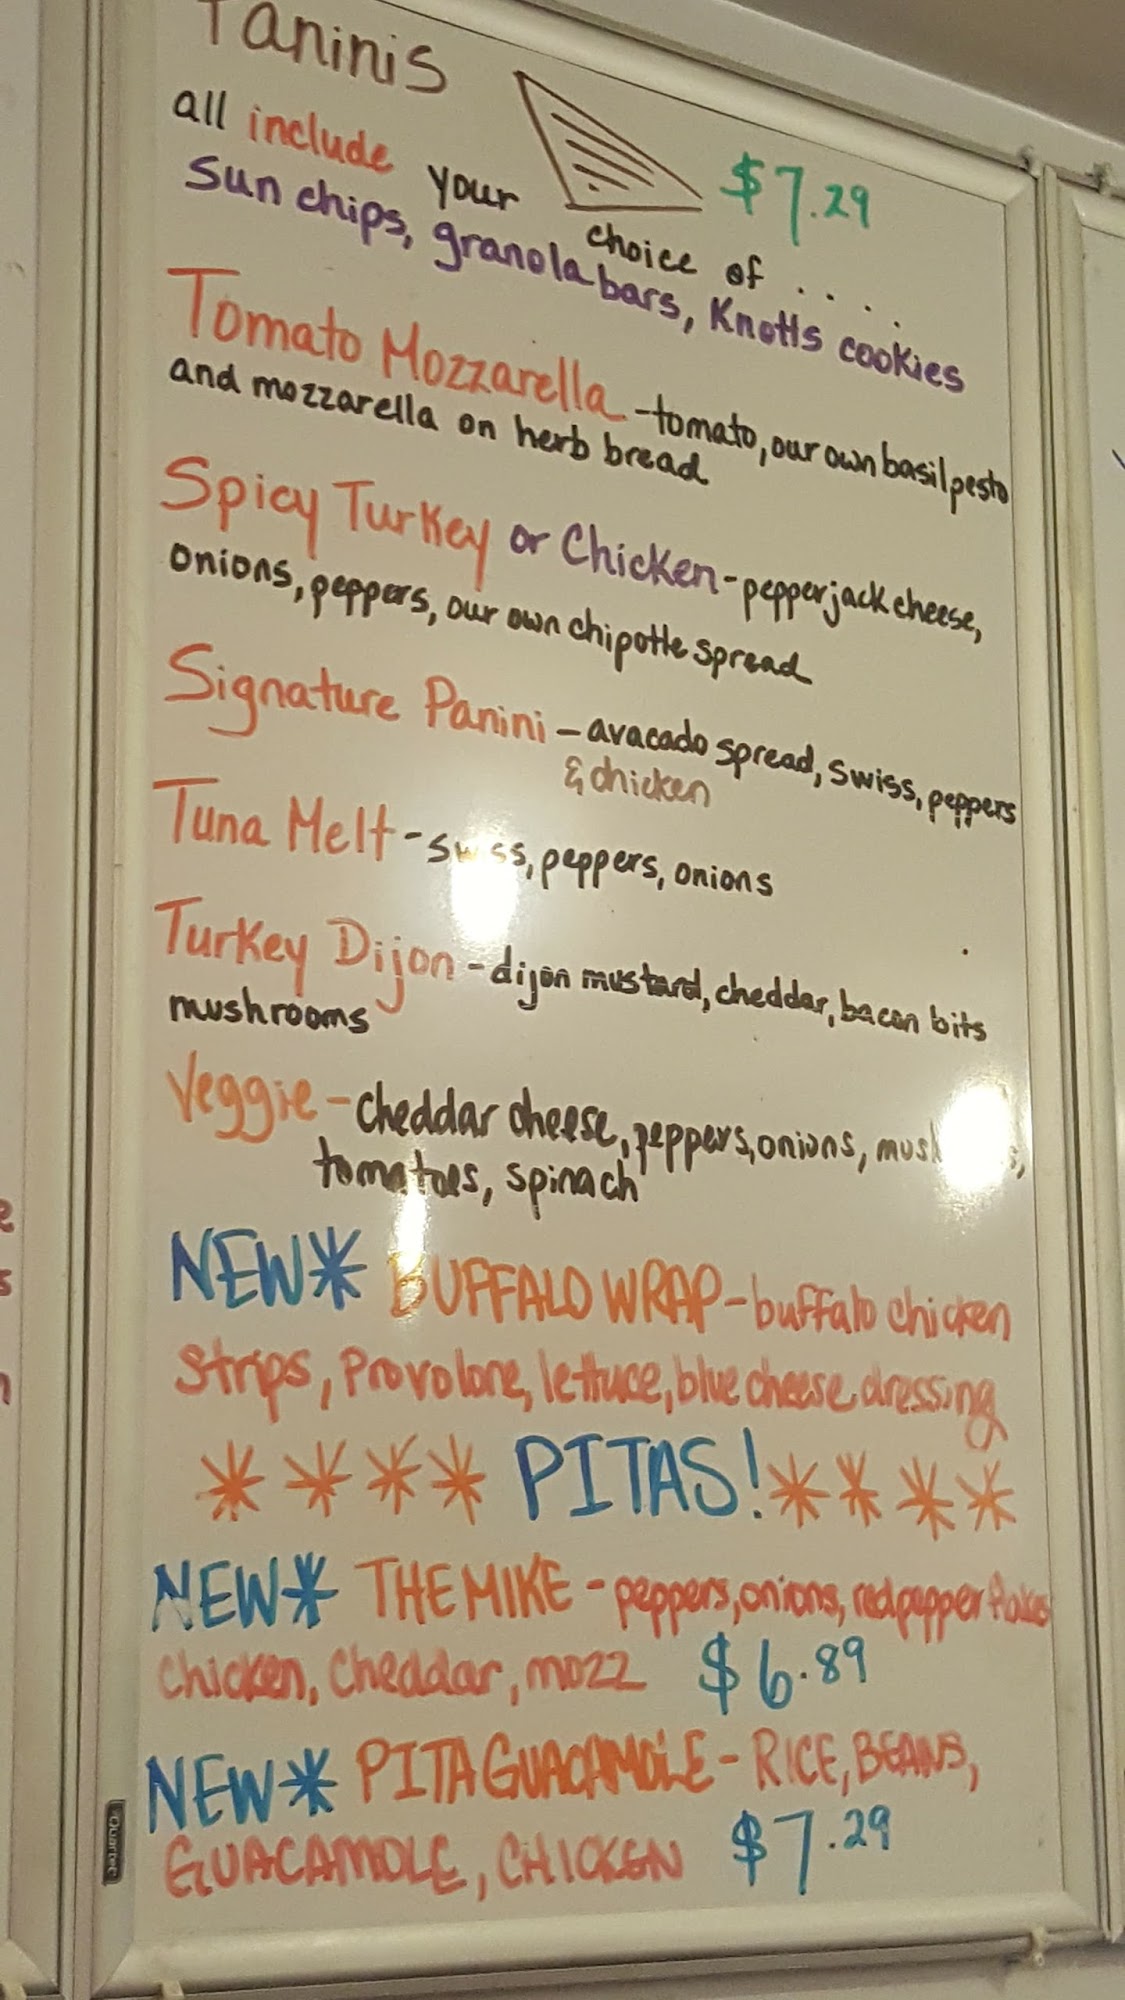 Paninis
$7.29
all include your choice of ....
Sun chips, granola bars, Knotts cookies
Tomato Mozzarella - tomato, our own basil pesto
and mozzarella on herb bread
Spicy Turkey or Chicken - pepper jack cheese,
onions, peppers, our own chipotle spread
Signature Panini - avacado spread, swiss, peppers
& chicken
Tuna Melt - swiss, peppers, onions
Turkey Dijon - dijon mustard, cheddar, bacon bits
mushrooms
Veggie - cheddar cheese, peppers, onions,
tomatoes, spinach
NEW* BUFFALO WRAP - buffalo chicken
strips, Provolone, lettuce, blue cheese dressing
**** PITAS! ****
NEW* THE MIKE - peppers, onions, red pepper flakes
chicken, cheddar, mozz $6.89
NEW* PITA GUACAMOLE - RICE, BEANS,
GUACAMOLE, CHICKEN $7.29
Quartet